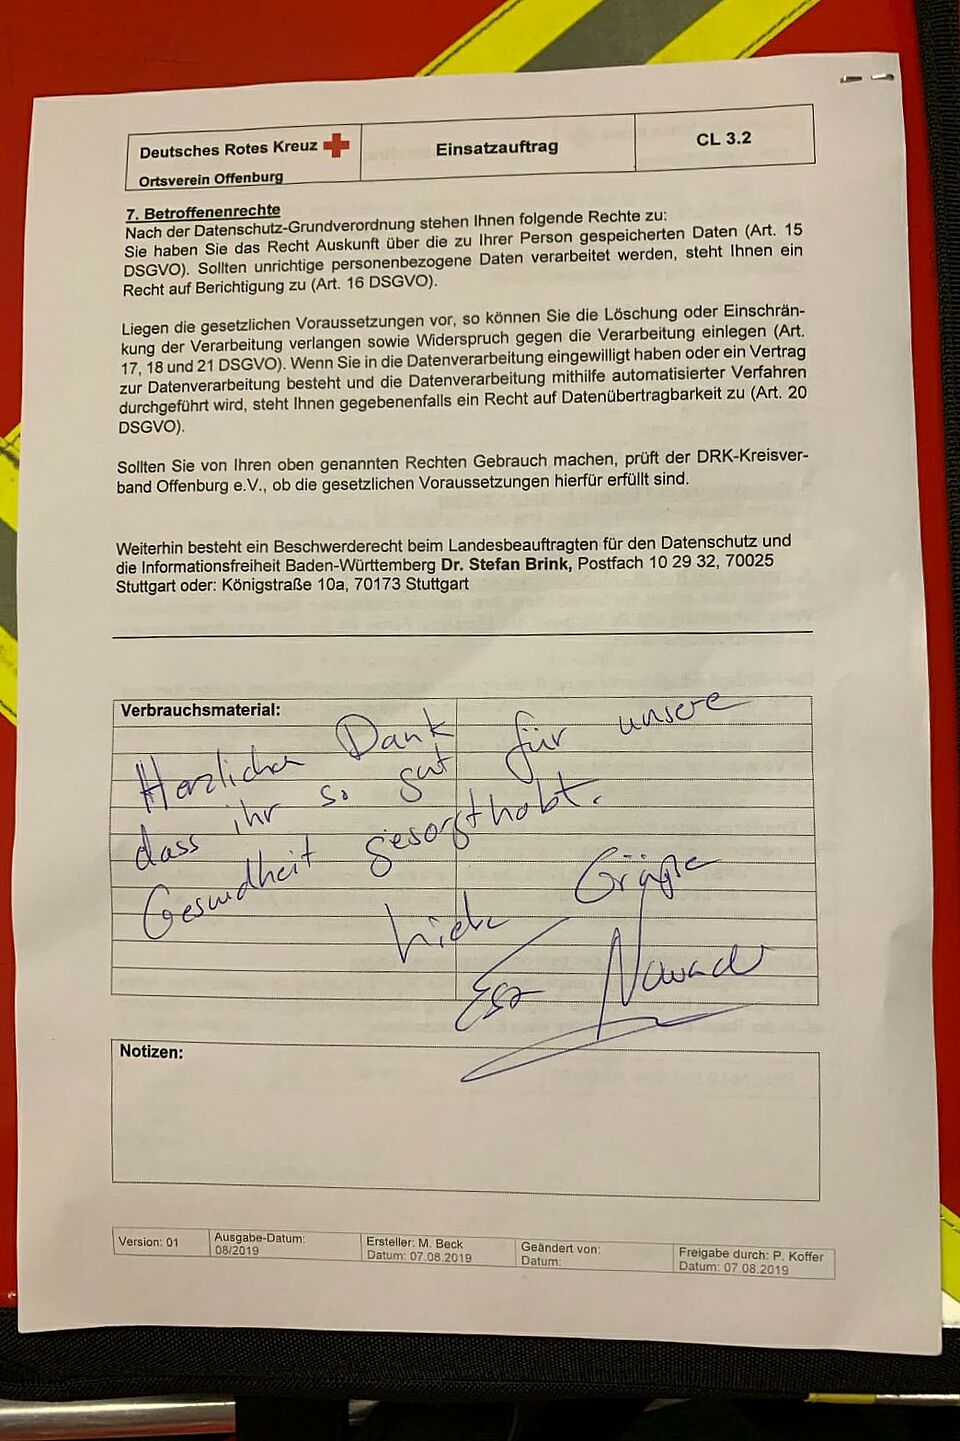 Deutsches Rotes Kreuz
Ortsverein Offenburg
Einsatzauftrag
CL 3.2
7. Betroffenenrechte
Nach der Datenschutz-Grundverordnung stehen Ihnen folgende Rechte zu:
Sie haben Sie das Recht Auskunft über die zu Ihrer Person gespeicherten Daten (Art. 15
DSGVO). Sollten unrichtige personenbezogene Daten verarbeitet werden, steht Ihnen ein
Recht auf Berichtigung zu (Art. 16 DSGVO).
Liegen die gesetzlichen Voraussetzungen vor, so können Sie die Löschung oder Einschrän-
kung der Verarbeitung verlangen sowie Widerspruch gegen die Verarbeitung einlegen (Art.
17, 18 und 21 DSGVO). Wenn Sie in die Datenverarbeitung eingewilligt haben oder ein Vertrag
zur Datenverarbeitung besteht und die Datenverarbeitung mithilfe automatisierter Verfahren
durchgeführt wird, steht Ihnen gegebenenfalls ein Recht auf Datenübertragbarkeit zu (Art. 20
DSGVO).
Sollten Sie von Ihren oben genannten Rechten Gebrauch machen, prüft der DRK-Kreisver-
band Offenburg e.V., ob die gesetzlichen Voraussetzungen hierfür erfüllt sind.
Weiterhin besteht ein Beschwerderecht beim Landesbeauftragten für den Datenschutz und
die Informationsfreiheit Baden-Württemberg Dr. Stefan Brink, Postfach 10 29 32, 70025
Stuttgart oder: Königstraße 10a, 70173 Stuttgart
Verbrauchsmaterial:
Herzlichen Dank
dass ihr so gut für unsere
Gesundheit gesorgt habt.
Liebe Grüße
Notizen:
Version: 01
Ausgabe-Datum:
08/2019
Ersteller: M. Beck
Datum: 07.08.2019
Geändert von:
Datum:
Freigabe durch: P. Koffer
Datum: 07.08.2019